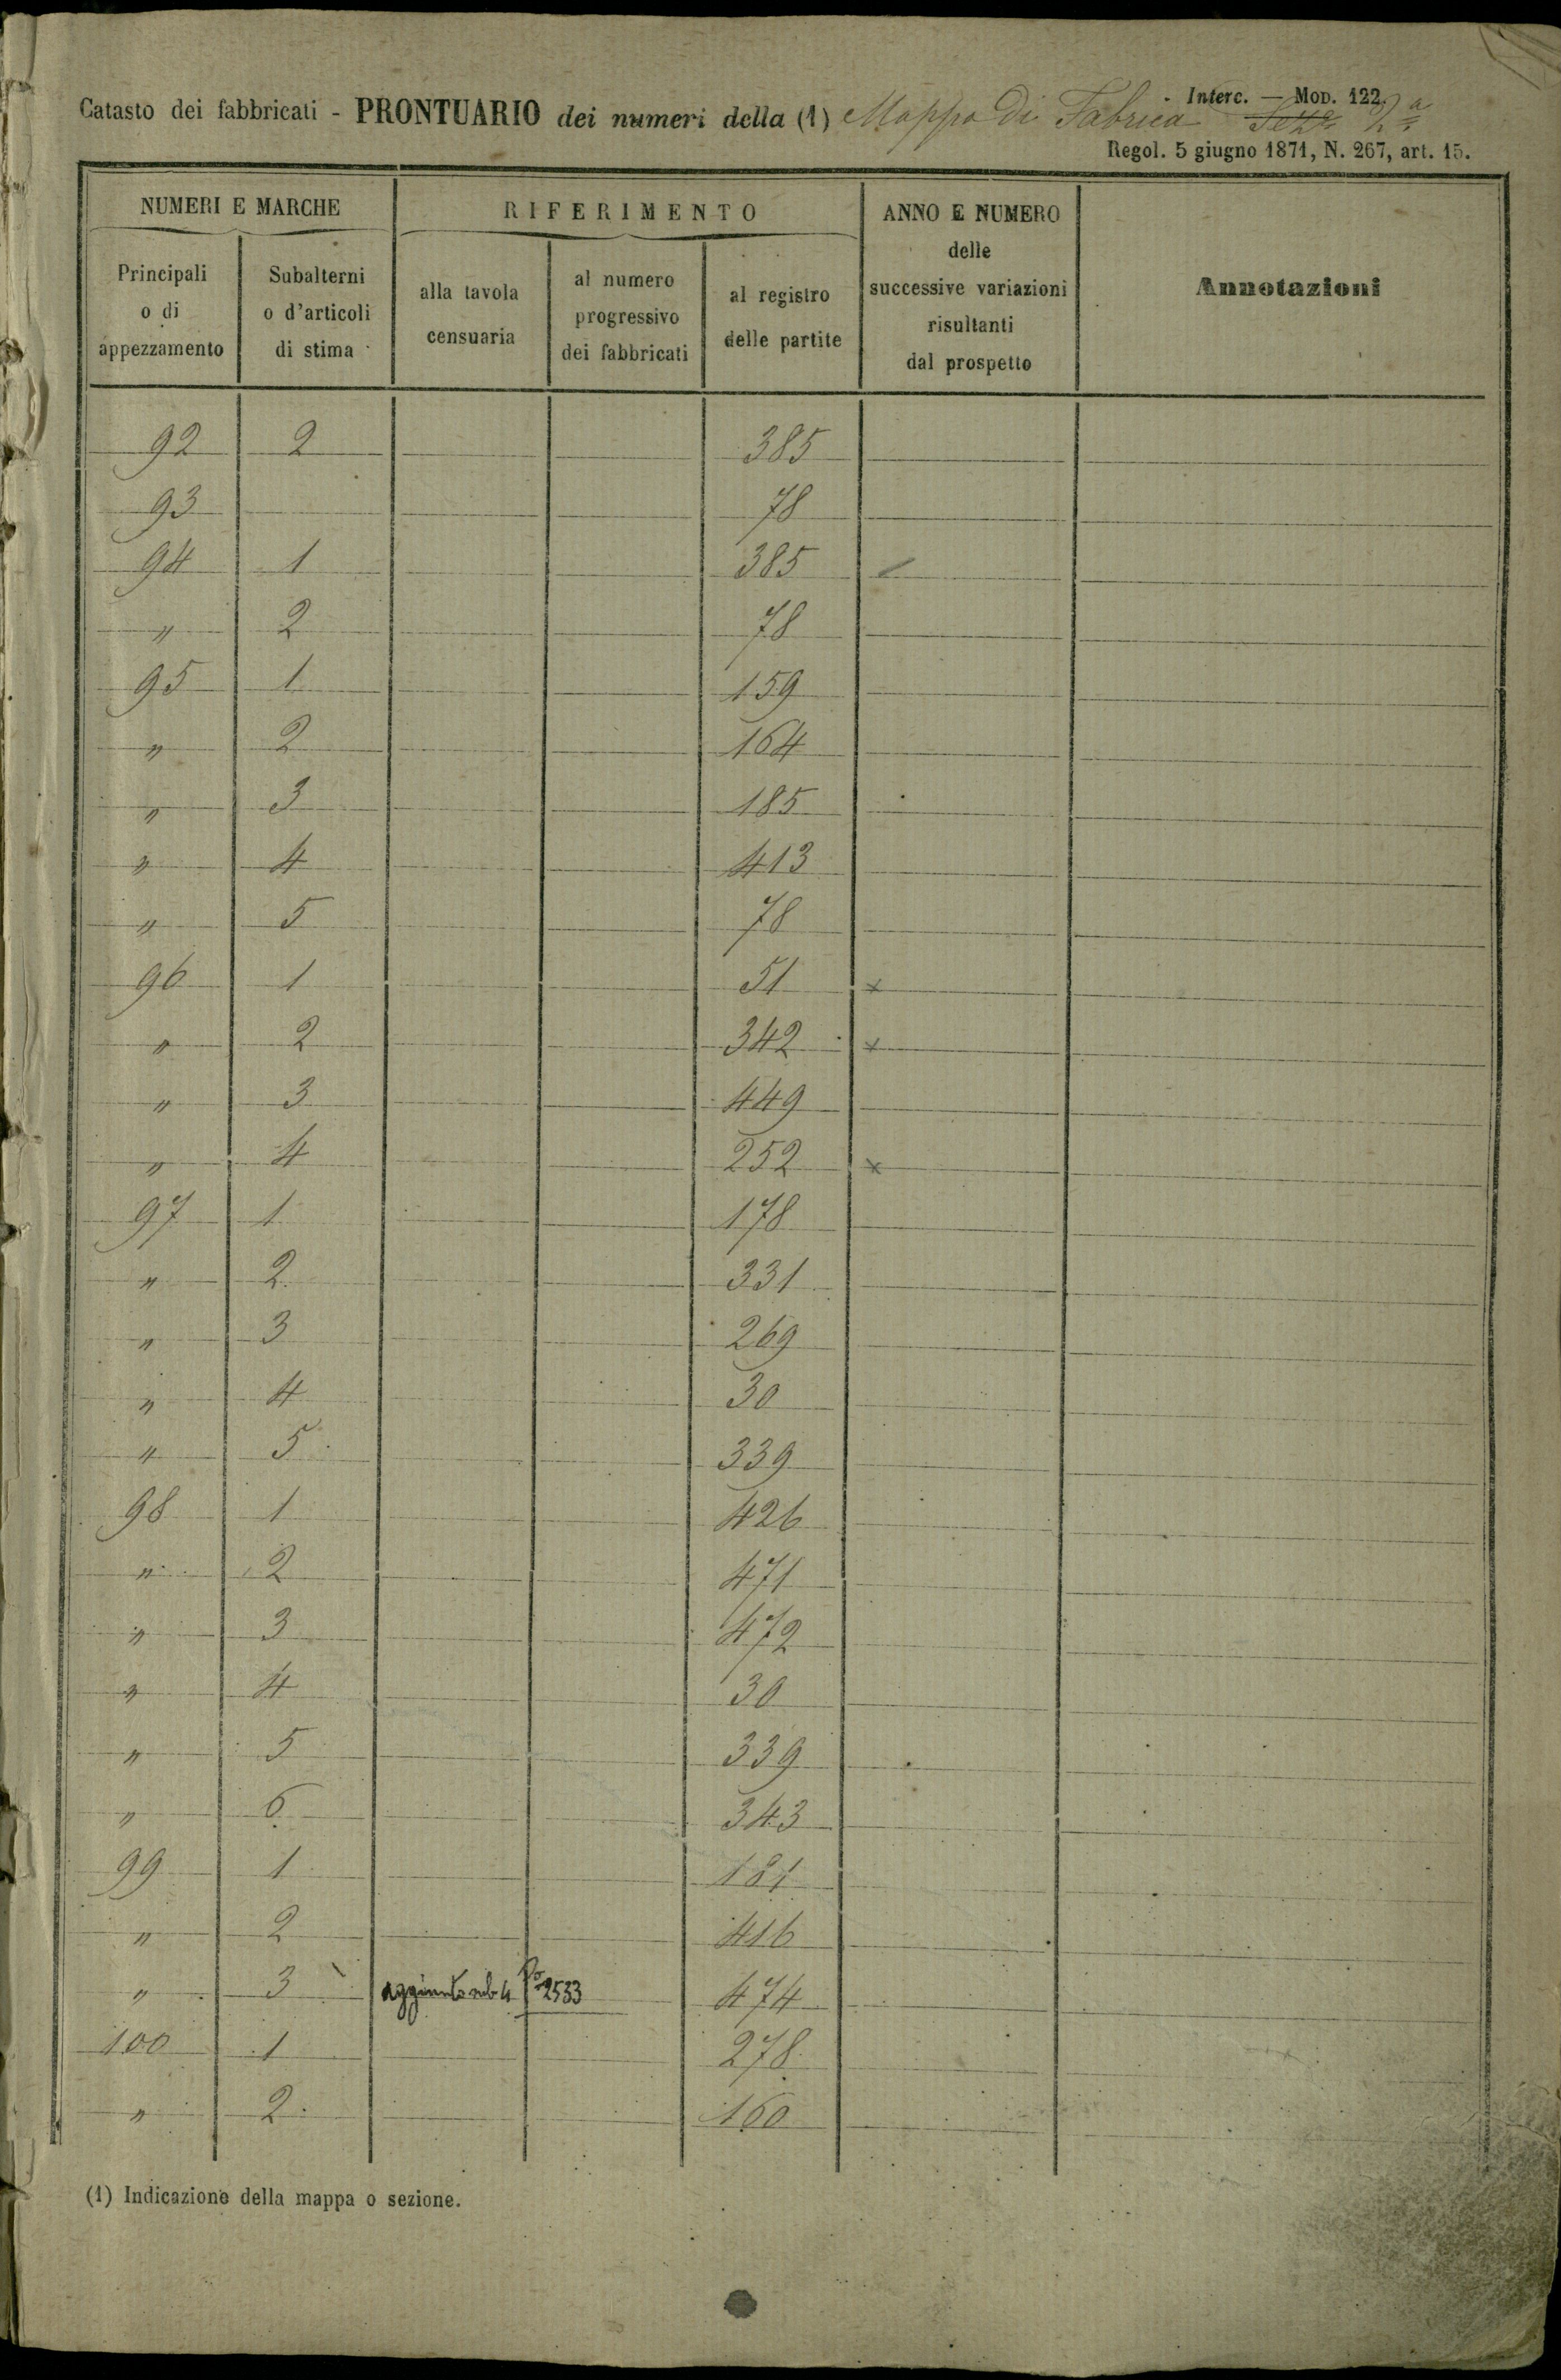 Interc. — Mod. 122.
Catasto dei fabbricati - PRONTUARIO dei numeri della (1) Mappa Di Fabrica Sez.e 2a
Regol. 5 giugno 1871, N. 267, art. 15.
NUMERI E MARCHE
Principali o di appezzamento
Subalterni o d'articoli di stima
RIFERIMENTO
alla tavola censuaria
al numero progressivo dei fabbricati
al registro delle partite
ANNO E NUMERO delle successive variazioni risultanti dal prospetto
Annotazioni
92 2 385
93 78
94 1 385
" 2 78
95 1 159
" 2 164
" 3 185
" 4 413
" 5 78
96 1 51 x
" 2 342 x
" 3 449
" 4 252 x
97 1 178
" 2 331
" 3 269
" 4 30
" 5 339
98 1 426
" 2 471
" 3 472
" 4 30
" 5 339
" 6 343
99 1 181
" 2 416
" 3 aggiunto sub 4 2533 474
100 1 278
" 2 160
(1) Indicazione della mappa o sezione.